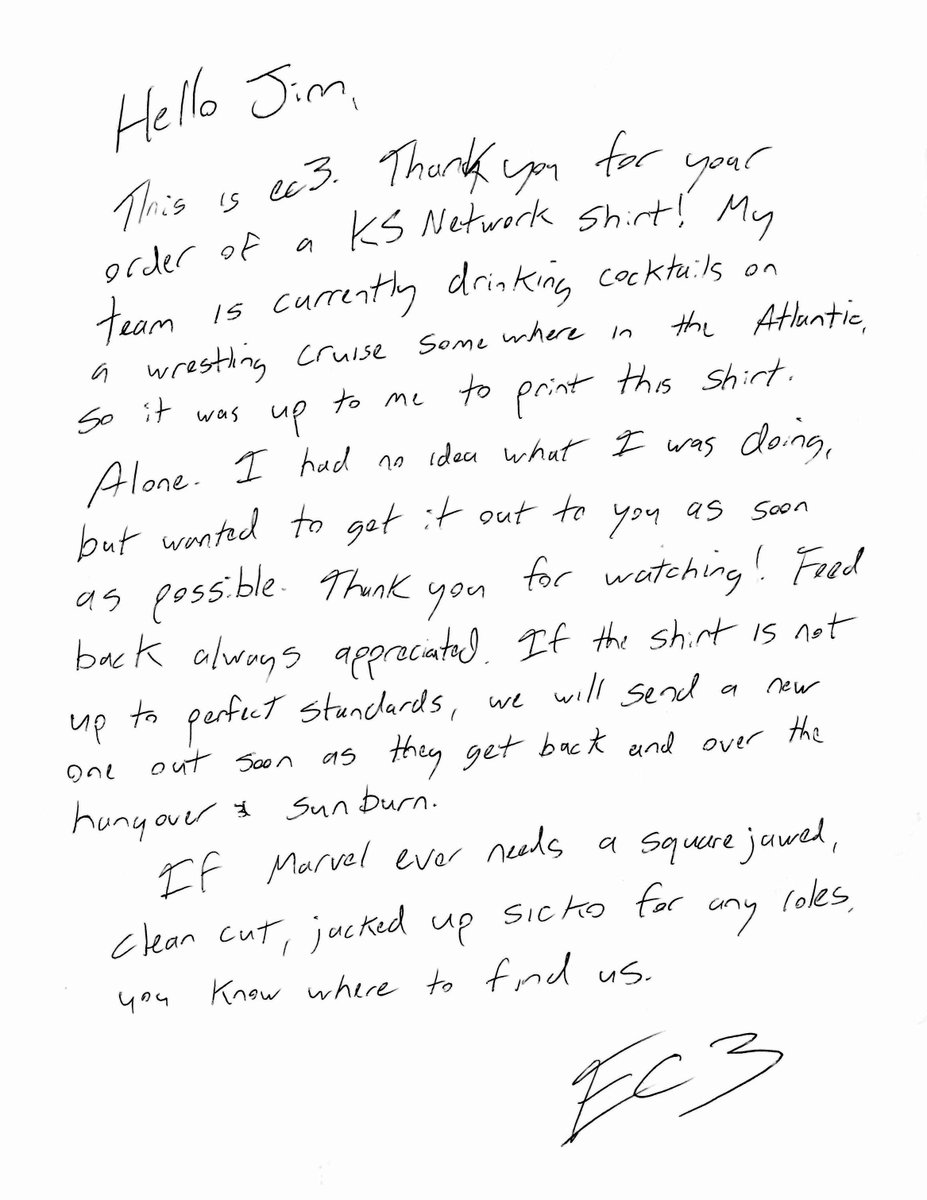 Hello Jim,
This is ec3. Thank you for your
order of a KS Network shirt! My
team is currently drinking cocktails on
a wrestling cruise somewhere in the Atlantic,
so it was up to me to print this shirt.
Alone. I had no idea what I was doing,
but wanted to get it out to you as soon
as possible. Thank you for watching! Feed
back always appreciated. If the shirt is not
up to perfect standards, we will send a new
one out soon as they get back and over the
hungover & sunburn.
If Marvel ever needs a square jawed,
clean cut, jacked up sicko for any roles,
you know where to find us.
EC3